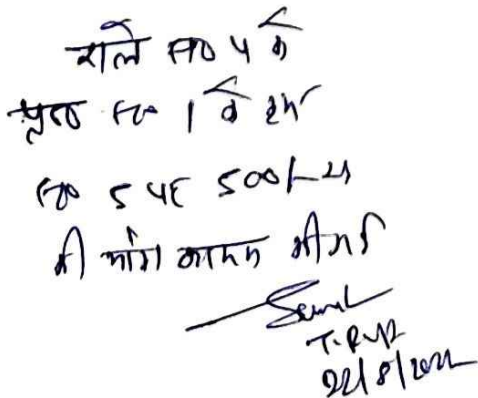 वाले स0 4 के
पृष्ठ स0 1 के क्रम
स0 5 पर 500/- रु
की मांग कायम की गई
22/8/2022